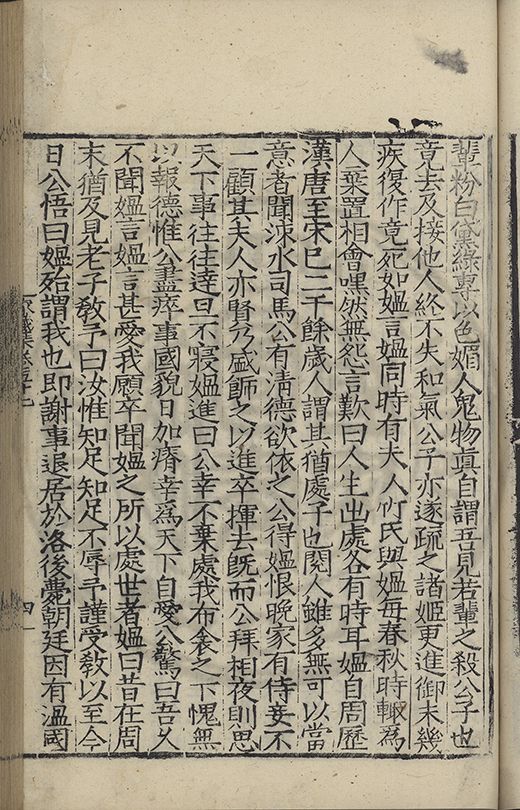 輩粉白黛綠專以色媚人鬼物眞自謂吾見若輩之殺公子也
竟去及接他人終不失和氣公子亦遂疏之諸姬更進御未幾
疾復作竟死如媼言媼同時有夫人竹氏與媼每春秋時輙爲
人棄置相會嘿然無怨言歎曰人生出處各有時耳媼自周歷
漢唐至宋已二千餘歲人謂其猶處子也閱人雖多無可以當
意者聞涑水司馬公有淸德欲依之公得媼恨晩家有侍妾不
一顧其夫人亦賢乃盛飾之以進卒揮去旣而公拜相夜則思
天下事往往達旦不寢媼進曰公幸不棄處我布衾之下愧無
以報德惟公盡瘁事國貌日加瘠幸爲天下自愛公驚曰吾乆
不聞媼言媼言甚愛我願卒聞媼之所以處世者媼曰昔在周
末猶及見老子敎予曰汝惟知足知足不辱予謹受敎以至今
日公悟曰媼殆謂我也卽謝事退居於洛後憂朝廷因有溫國